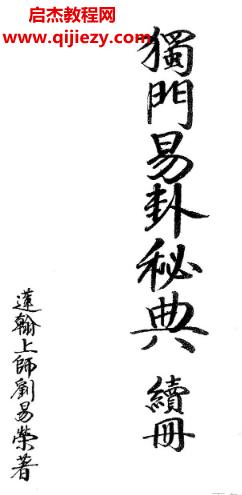 启杰教程网
www.qijiezy.com
獨門易卦秘典 續冊
蓮翰上師劉易榮著